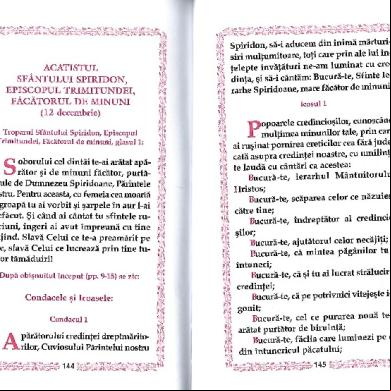 ACATISTUL
SFÂNTULUI SPIRIDON,
EPISCOPUL TRIMITUNDEI,
FĂCĂTORUL DE MINUNI
(12 decembrie)
Troparul Sfântului Spiridon, Episcopul
Trimitundei, Făcătorul de minuni, glasul 1:
Soborului cel dintâi te-ai arătat apă-
rător și de minuni făcător, purtă-
torule de Dumnezeu Spiridoane, Părintele
nostru. Pentru aceasta, cu femeia cea moartă
în groapă tu ai vorbit și șarpele în aur l-ai
prefăcut. Și când ai cântat tu sfintele ru-
găciuni, îngeri ai avut împreună cu tine
slujind. Slavă Celui ce te-a preamărit pe
tine, slavă Celui ce lucrează prin tine tu-
turor tămăduiri!
După obișnuitul început (pp. 9-15) se zic:
Condacele și Icoasele:
Condacul 1
Apărătorul credinței dreptmărito-
rilor, Cuviosului Părintelui nostru
144
Spiridon, să-i aducem din inimă mărturi-
siri mulțumitoare, toți care prin ale lui în-
țelepte învățături ne-am luminat cu cre-
dința, și să-i cântăm: Bucură-te, Sfinte Ie-
rarhe Spiridoane, mare făcător de minuni!
Icosul 1
Popoarele credincioșilor, cunoscând
mulțimea minunilor tale, prin care
ai rușinat pornirea ereticilor cea fără jude-
cată asupra credinței noastre, cu umilință
te laudă cu cântări ca acestea:
Bucură-te, ierarhul Mântuitorului
Hristos;
Bucură-te, scăparea celor ce năzuiesc
către tine;
Bucură-te, îndreptător al credincio-
șilor;
Bucură-te, ajutătorul celor necăjiți;
Bucură-te, că mintea păgânilor tu
întuneci;
Bucură-te, că și tu ai lucrat strălucirea
credinței;
Bucură-te, că pe potrivnici vitejește i-ai
gonit;
Bucură-te, cel ce pururea nouă te-ai
arătat purtător de biruință;
Bucură-te, făclia care luminezi pe cei
din întunericul păcatului;
145